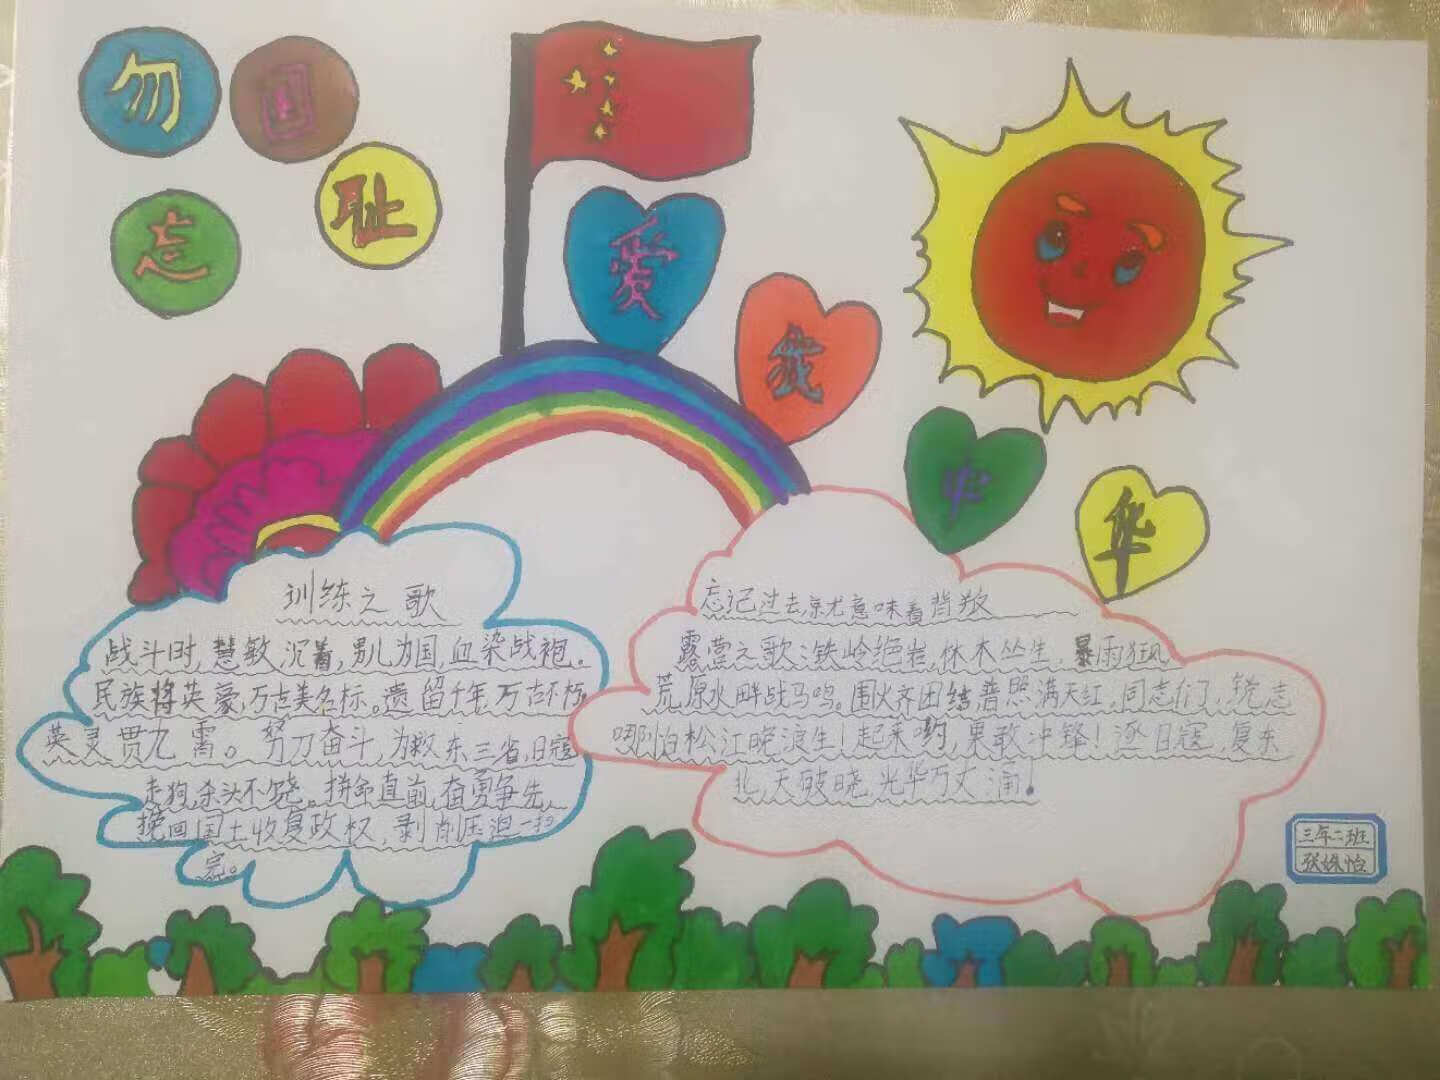 勿
国
忘
耻
爱
我
中
华
训练之歌
战斗时,慧敏,沉着,男儿为国,血染战袍。
民族将英豪,万古美名标。遗留千年,万古不朽
英灵贯九霄。努力奋斗,为救东三省,日寇
走狗,杀头不饶。拼命直前,奋勇争先,
挽回国土收复政权,剥削压迫一扫
完。
忘记过去,就意味着背叛
露营之歌:铁岭绝岩,林木丛生,暴雨狂风
荒原水畔战马鸣。围火齐团结普照满天红。同志们,锐志
哪怕松江晚浪生!起来哟,果敢冲锋!逐日寇,复东
北,天破晓,光华万丈涌!
三年二班
张姝怡